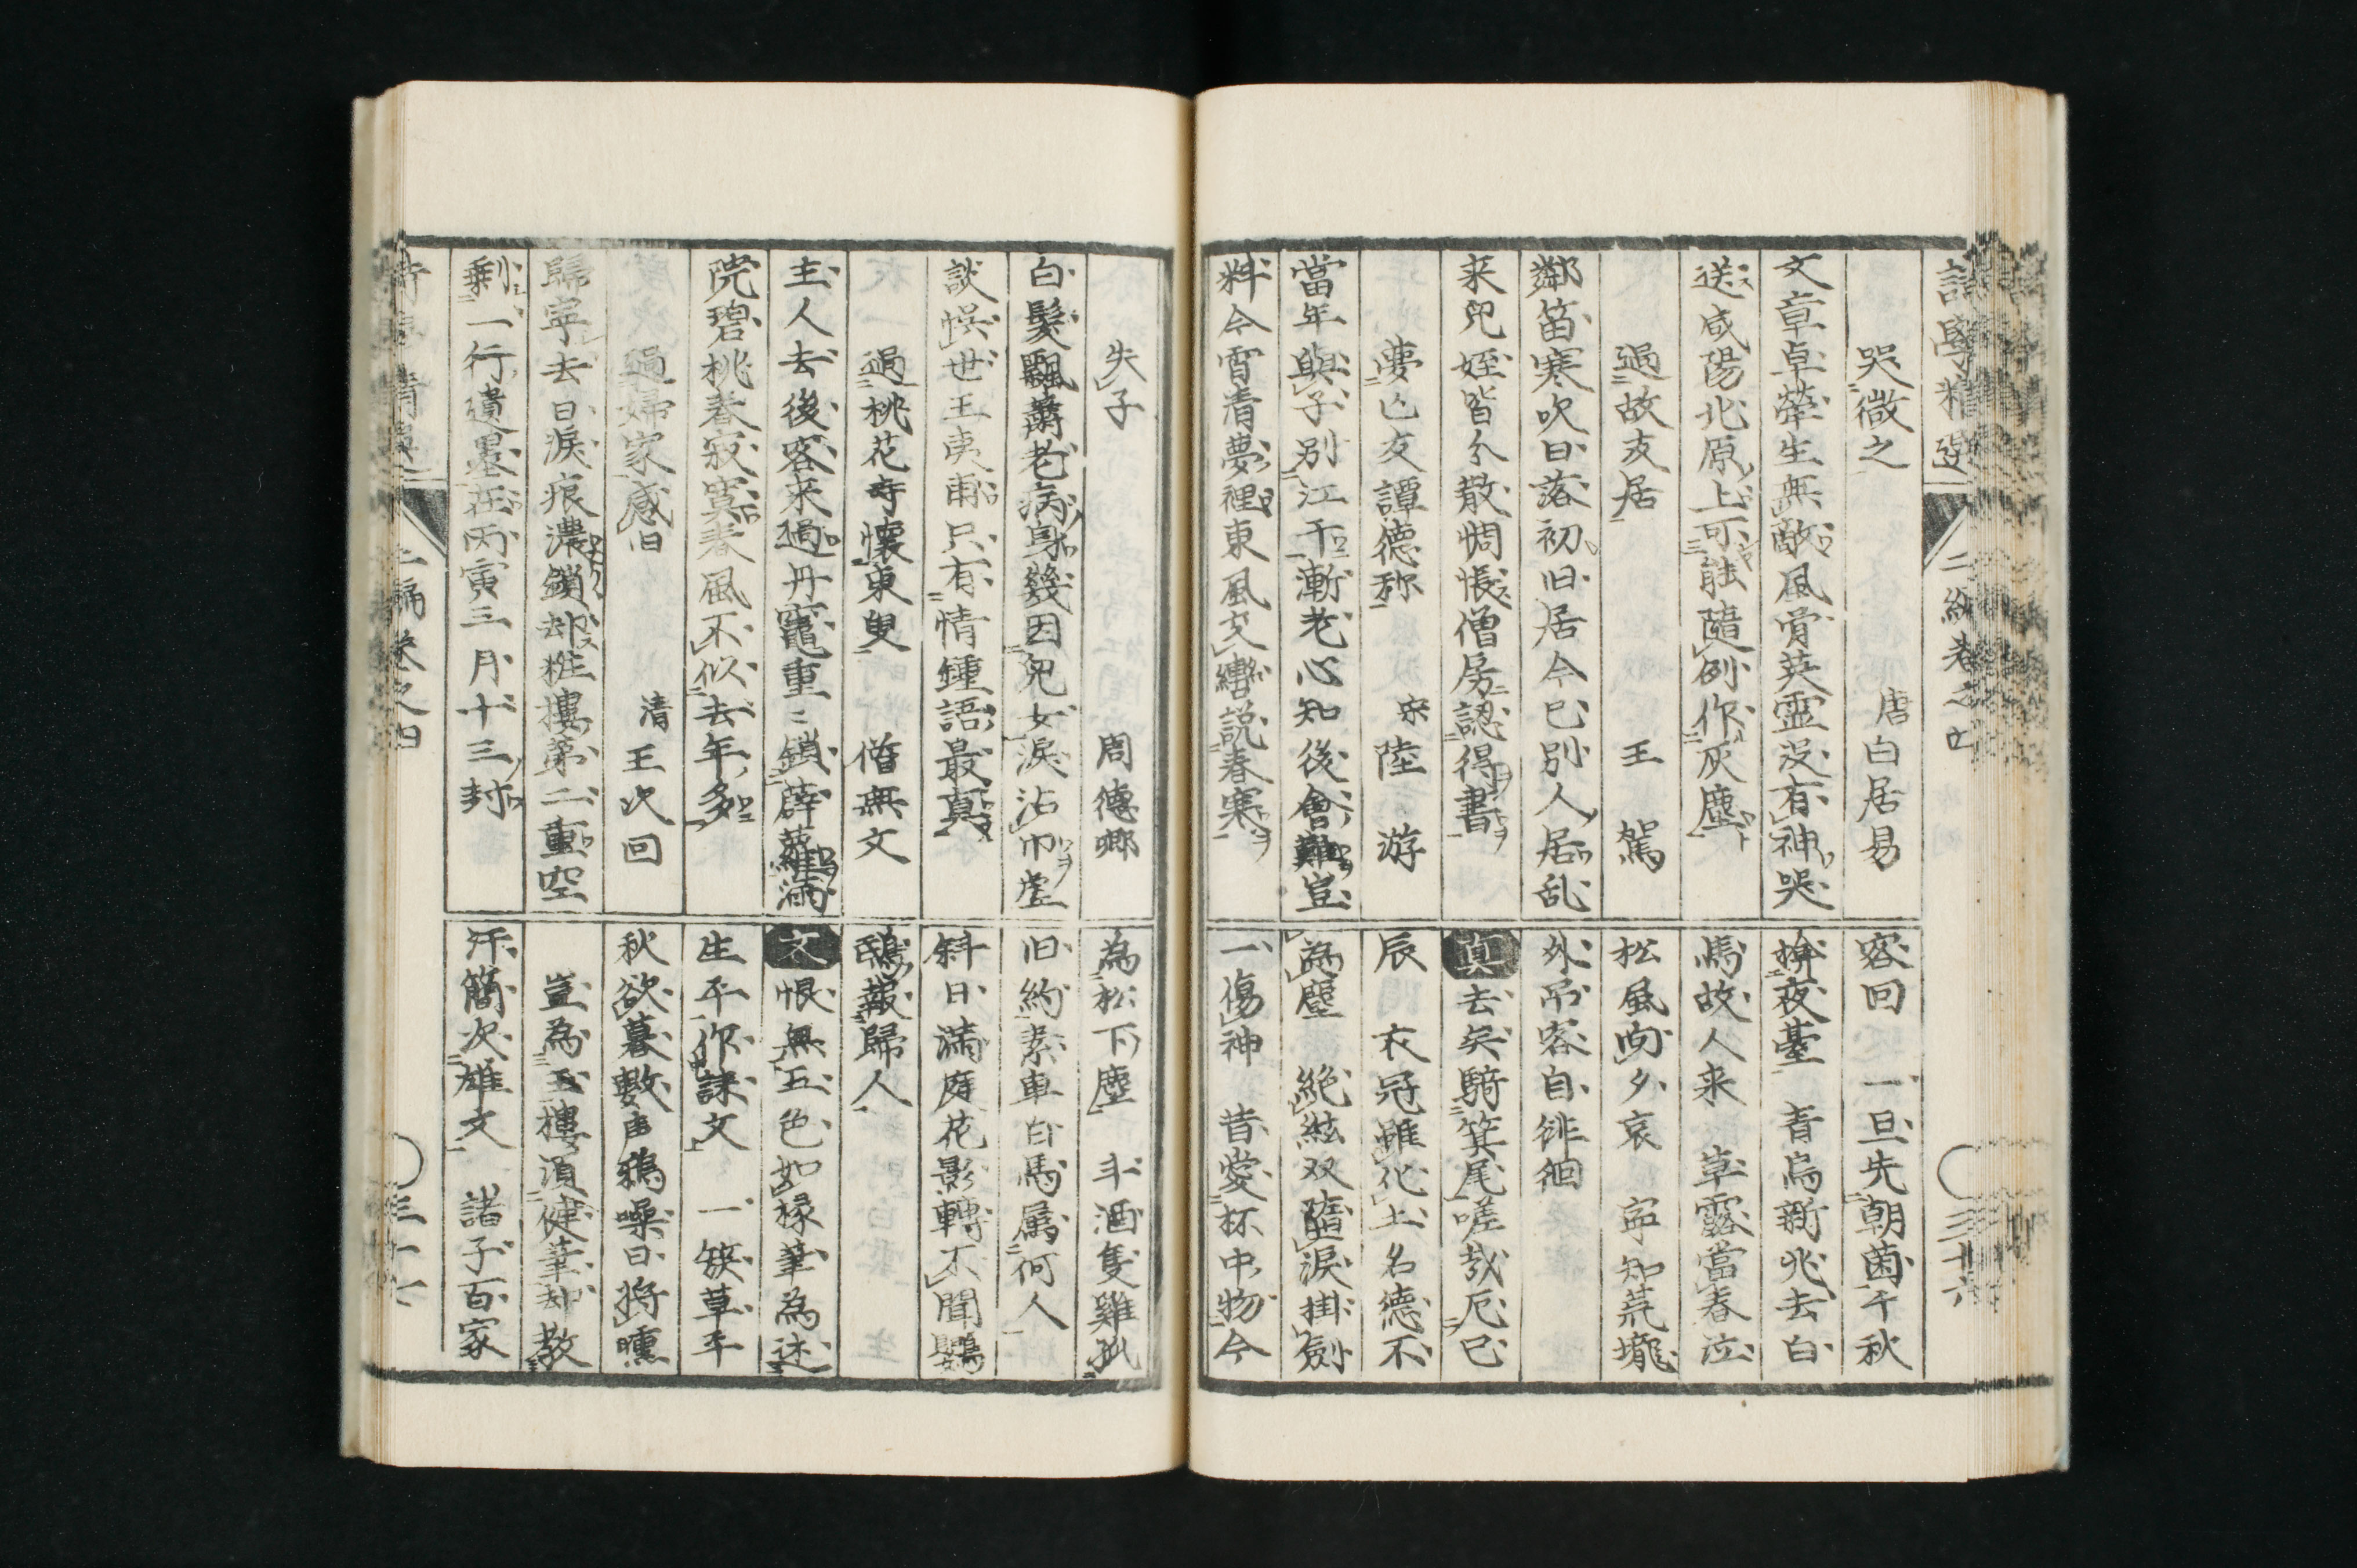 詩學精選 二編卷之四 三十六
哭微之 唐 白居易
文章卓犖生無敵風骨英霊没有神哭
送咸陽北原上可能隨例作灰塵
過故友居 王駕
鄰笛寒吹日落初旧居今已別人居乱
来児姪皆分散惆悵僧房認得書
夢亡友譚德称 宋 陸游
當年與子別江干漸老心知後會難豈
料今宵清夢裡東風交轡説春寒
客回 一旦先朝菌千秋
揜夜臺 青烏新兆去白
馬故人来 草露當春泣
松風向夕哀 寧知荒壠
外吊客自徘徊
真 去矣騎箕尾嗟哉厄巳
辰 衣冠雖化土名德不
為塵 絶絃双墮淚掛劔
一傷神 昔愛杯中物今
失子 周德卿
白髮飄蕭老病身幾因兒女淚沾巾虚
談悞世王夷甫只有情鍾語最真
過桃花寺懷東叟 僧無文
主人去後客来過丹竈重ミ鎖薜蘿満
院碧桃春寂寞春風不似去年多
過婦家感旧 清 王次回
歸寧去日淚痕濃鎖却粧樓第二重空
剩一行遺墨在丙寅三月十三封
為松下塵 斗酒隻雞孤
旧約素車白馬属何人
斜日満庭花影轉不聞鸚
鵡報歸人
文 恨無五色如椽筆為述
生平作誄文 一簇草平
秋欲暮數声鴉噪日将曛
豈為玉樓須健筆却教
汗簡次雄文 諸子百家
二編卷之四 三十七